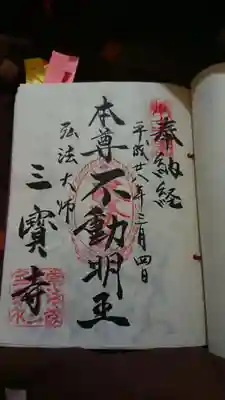 奉納経
平成廿八年三月四日
本尊不動明王
弘法大師
三寳寺